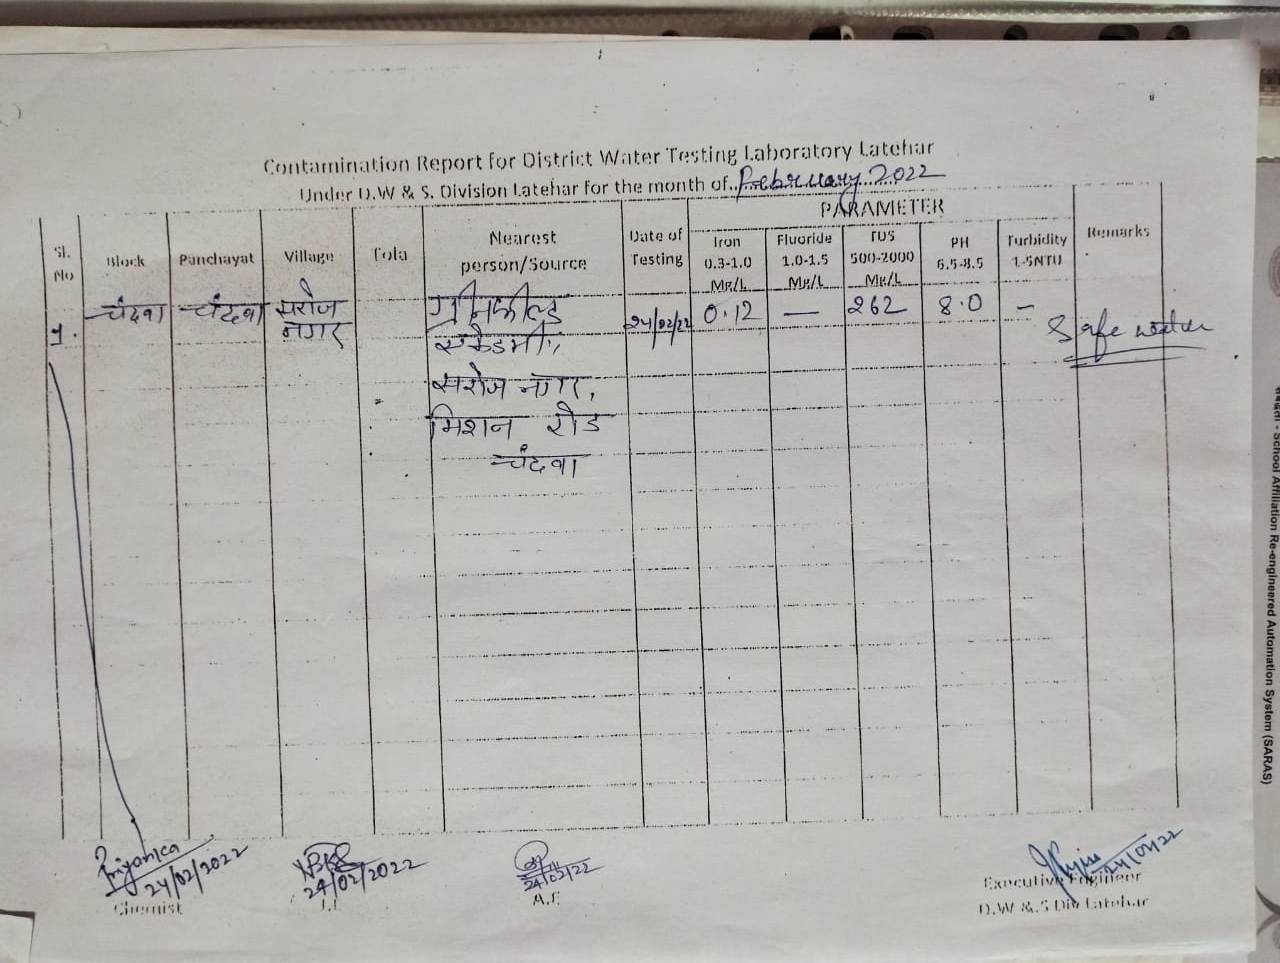 Contamination Report for District Water Testing Laboratory Latehar
Under D.W & S. Division Latehar for the month of..February 2022
PARAMETER
Sl. No
Block
Panchayat
Village
Tola
Nearest person/Source
Date of Testing
Iron 0.3-1.0 Mg/L
Fluoride 1.0-1.5 Mg/L
TDS 500-2000 Mg/L
PH 6.5-8.5
Turbidity 1-5NTU
Remarks
१. चंदवा चंदवा सरोज नगर
ग्रीनफील्ड
एकेडमी,
सरोज नगर,
मिशन रोड
चंदवा
24/02/22 0.12 — 262 8.0 — Safe water
Priyanka
24/02/2022
Chemist
24/02/2022
J.E
24/02/22
A.E
24/02/22
Executive Engineer
D.W & S Div Latehar
School Affiliation Re-engineered Automation System (SARAS)